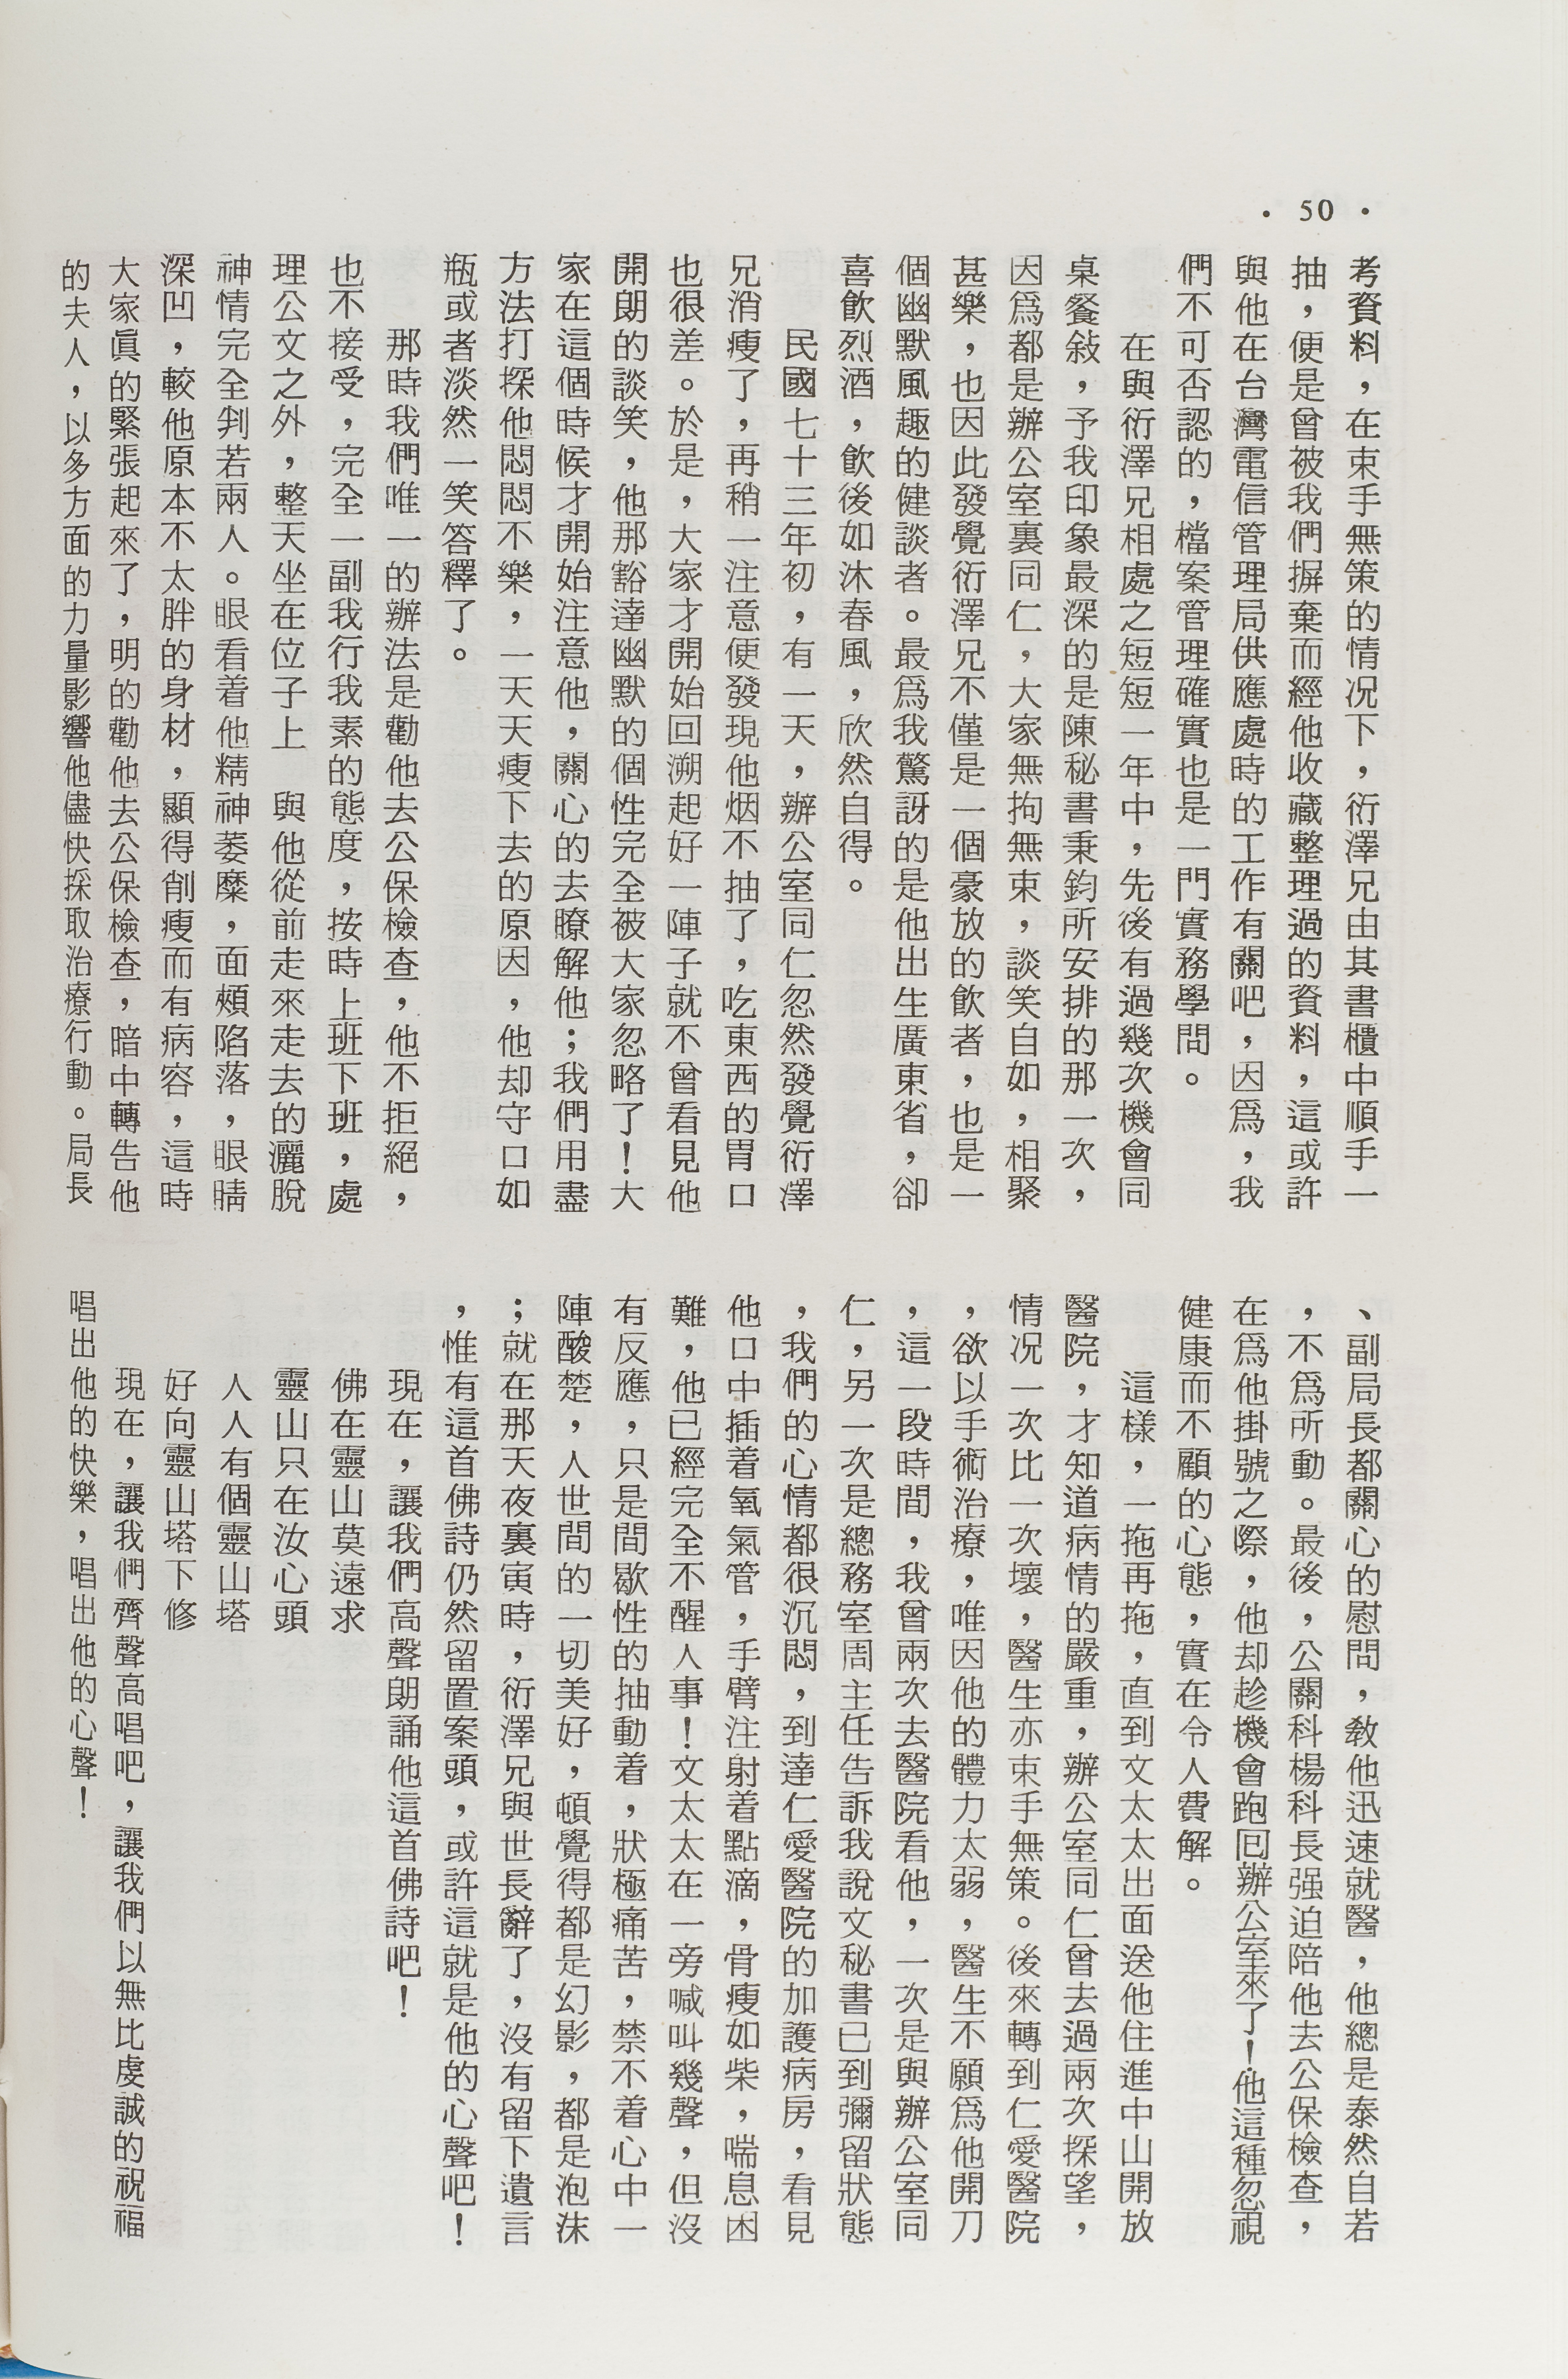 ・50・
考資料，在束手無策的情況下，衍澤兄由其書櫃中順手一
抽，便是曾被我們摒棄而經他收藏整理過的資料，這或許
與他在台灣電信管理局供應處時的工作有關吧，因爲，我
們不可否認的，檔案管理確實也是一門實務學問。
在與衍澤兄相處之短短一年中，先後有過幾次機會同
桌餐敍，予我印象最深的是陳秘書秉鈞所安排的那一次，
因爲都是辦公室裏同仁，大家無拘無束，談笑自如，相聚
甚樂，也因此發覺衍澤兄不僅是一個豪放的飲者，也是一
個幽默風趣的健談者。最爲我驚訝的是他出生廣東省，卻
喜飲烈酒，飲後如沐春風，欣然自得。
民國七十三年初，有一天，辦公室同仁忽然發覺衍澤
兄消瘦了，再稍一注意便發現他烟不抽了，吃東西的胃口
也很差。於是，大家才開始回溯起好一陣子就不曾看見他
開朗的談笑，他那豁達幽默的個性完全被大家忽略了！大
家在這個時候才開始注意他，關心的去瞭解他；我們用盡
方法打探他悶悶不樂，一天天瘦下去的原因，他却守口如
瓶或者淡然一笑答釋了。
那時我們唯一的辦法是勸他去公保檢查，他不拒絕，
也不接受，完全一副我行我素的態度，按時上班下班，處
理公文之外，整天坐在位子上　與他從前走來走去的灑脫
神情完全判若兩人。眼看着他精神萎糜，面頰陷落，眼睛
深凹，較他原本不太胖的身材，顯得削瘦而有病容，這時
大家眞的緊張起來了，明的勸他去公保檢查，暗中轉告他
的夫人，以多方面的力量影響他儘快採取治療行動。局長
、副局長都關心的慰問，敎他迅速就醫，他總是泰然自若
，不爲所動。最後，公關科楊科長强迫陪他去公保檢查，
在爲他掛號之際，他却趁機會跑回辦公室來了！他這種忽視
健康而不顧的心態，實在令人費解。
這樣，一拖再拖，直到文太太出面送他住進中山開放
醫院，才知道病情的嚴重，辦公室同仁曾去過兩次探望，
情況一次比一次壞，醫生亦束手無策。後來轉到仁愛醫院
，欲以手術治療，唯因他的體力太弱，醫生不願爲他開刀
，這一段時間，我曾兩次去醫院看他，一次是與辦公室同
仁，另一次是總務室周主任告訴我說文秘書已到彌留狀態
，我們的心情都很沉悶，到達仁愛醫院的加護病房，看見
他口中插着氧氣管，手臂注射着點滴，骨瘦如柴，喘息困
難，他已經完全不醒人事！文太太在一旁喊叫幾聲，但沒
有反應，只是間歇性的抽動着，狀極痛苦，禁不着心中一
陣酸楚，人世間的一切美好，頓覺得都是幻影，都是泡沫
；就在那天夜裏寅時，衍澤兄與世長辭了，沒有留下遺言
，惟有這首佛詩仍然留置案頭，或許這就是他的心聲吧！
現在，讓我們高聲朗誦他這首佛詩吧！
佛在靈山莫遠求
靈山只在汝心頭
人人有個靈山塔
好向靈山塔下修
現在，讓我們齊聲高唱吧，讓我們以無比虔誠的祝福
唱出他的快樂，唱出他的心聲！